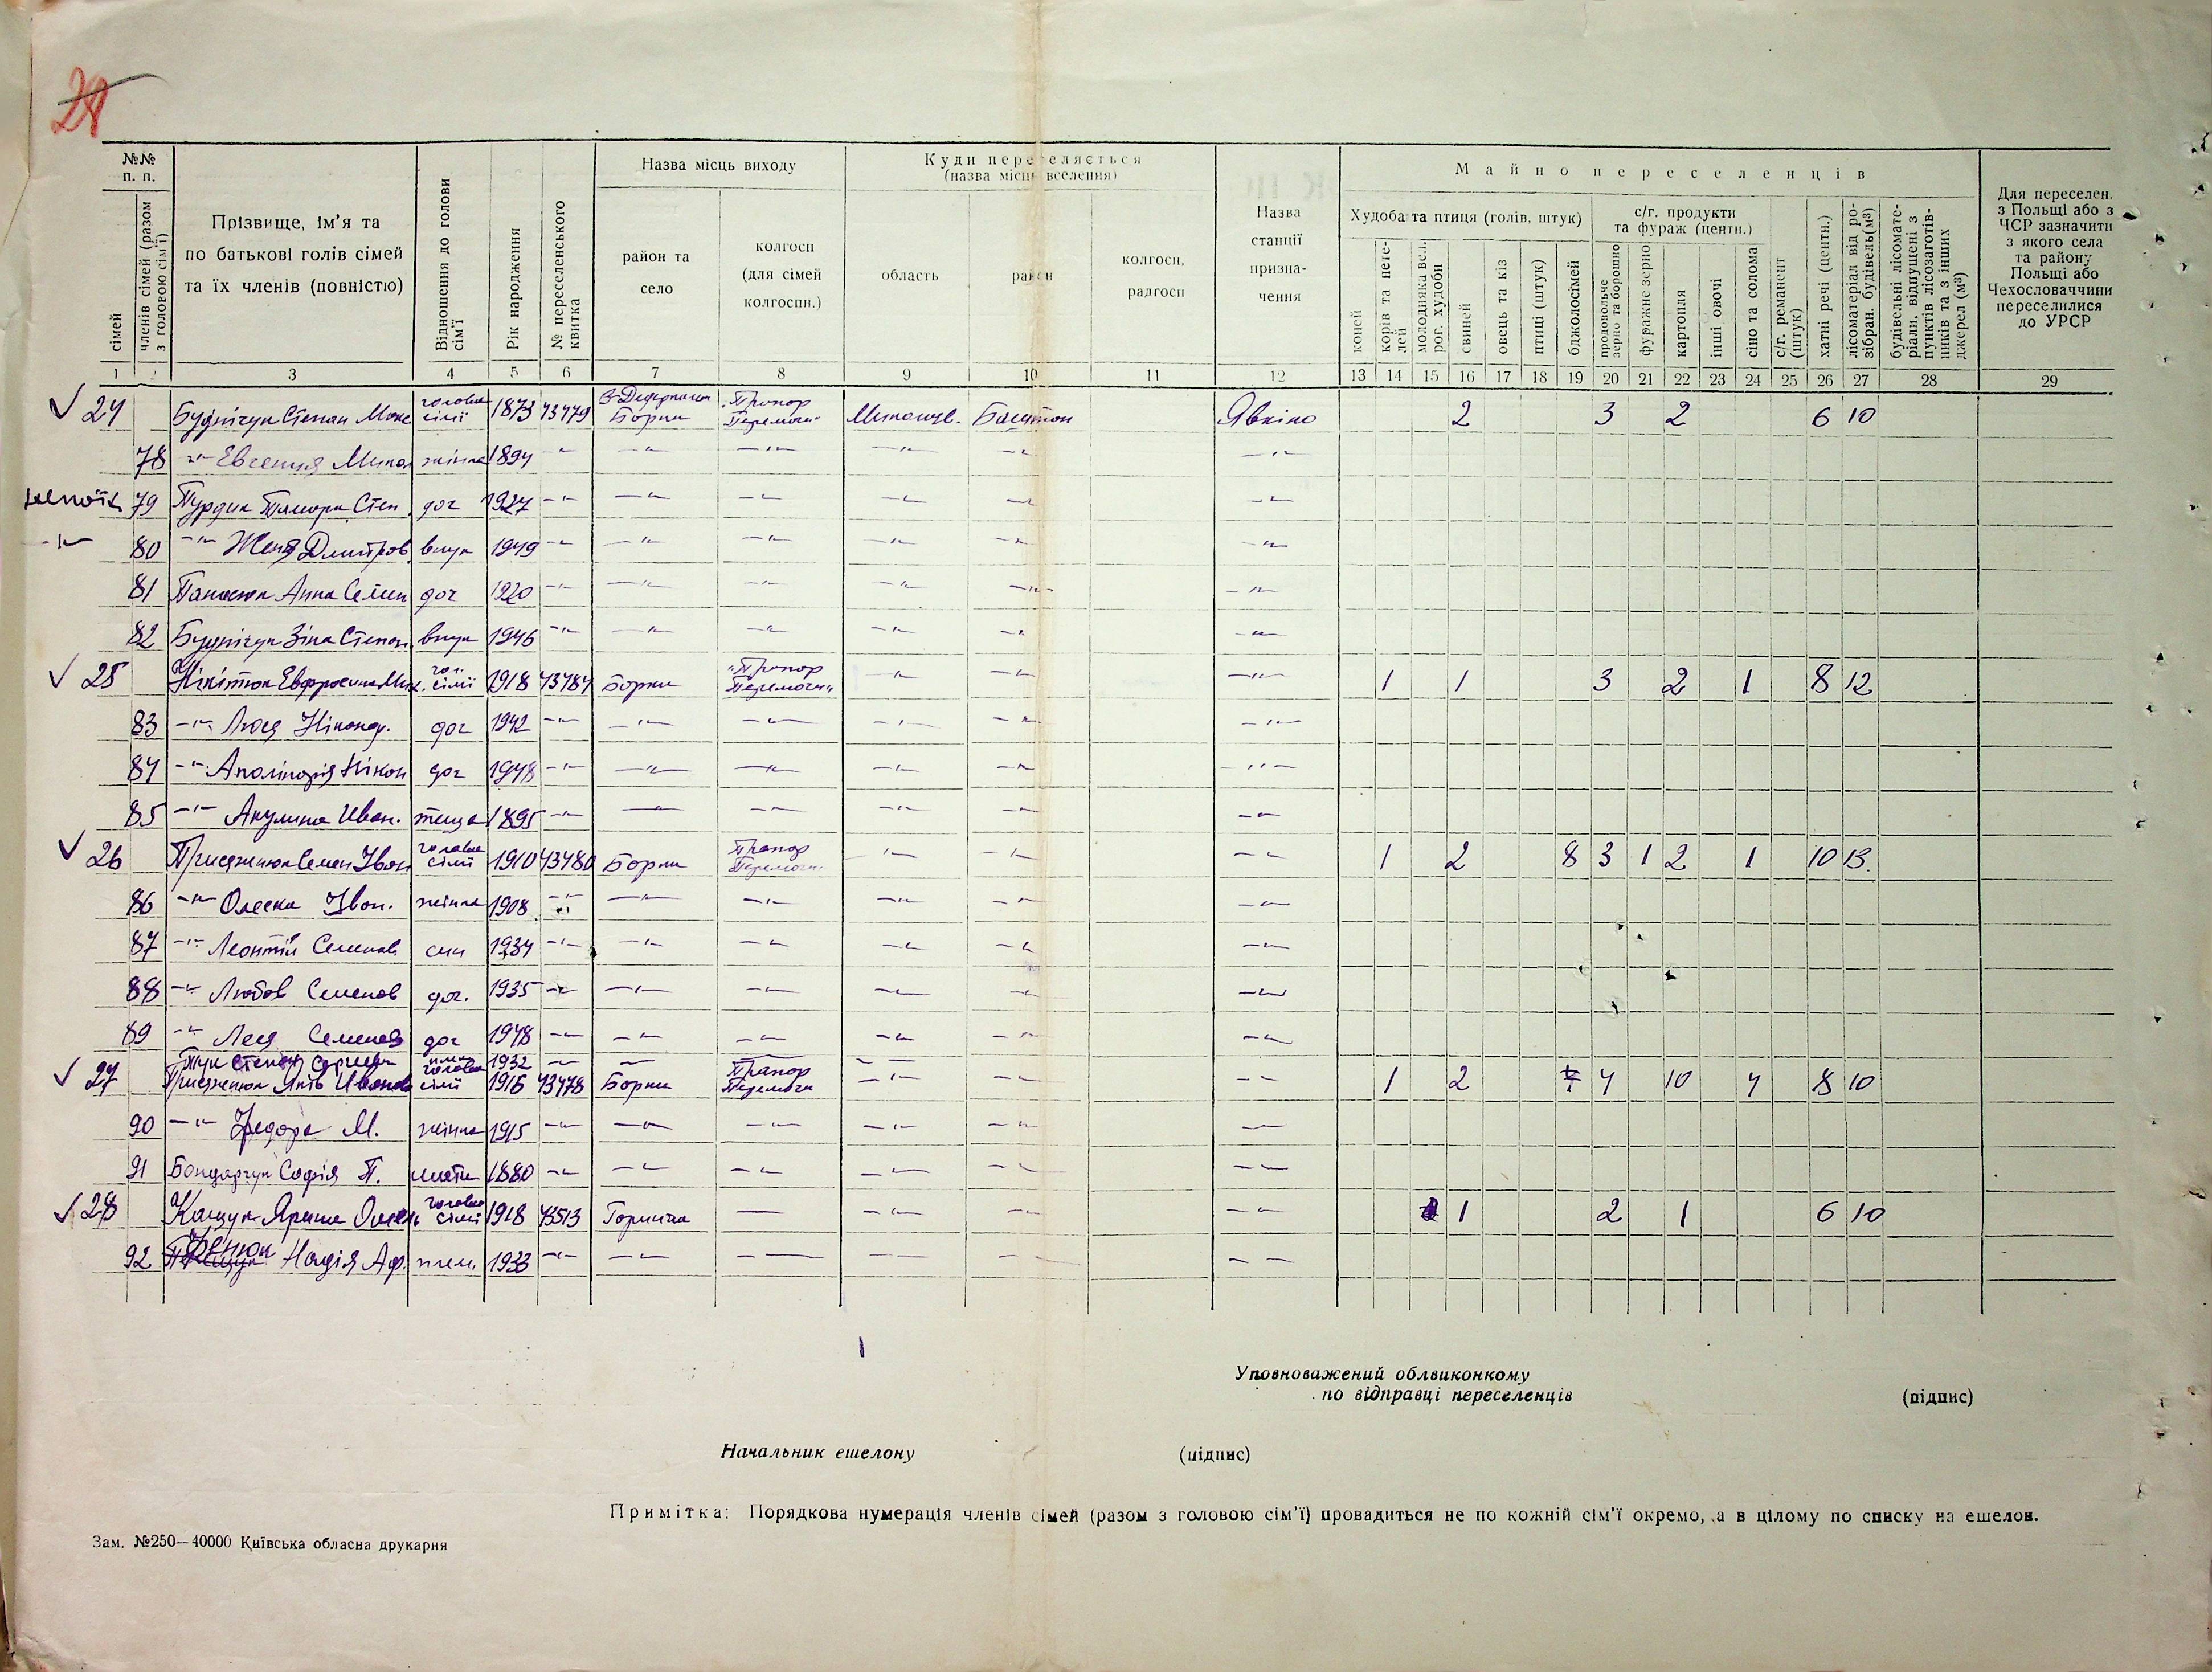 28
№№ п. п.
сімей
членів сімей (разом з головою сім'ї)
Прізвище, ім'я та по батькові голів сімей та їх членів (повністю)
Відношення до голови сім'ї
Рік народження
№ переселенського квитка
Назва місць виходу
район та село
колгосп (для сімей колгоспн.)
Куди переселяється (назва місць вселення)
область
район
колгосп, радгосп
Назва станції призначення
Майно переселенців
Худоба та птиця (голів, штук)
коней
корів та нетелей
молодняка вел. рог. худоби
свиней
овець та кіз
птиці (штук)
бджолосімей
с/г. продукти та фураж (центн.)
продовольче зерно та борошно
фуражне зерно
картопля
інші овочі
сіно та солома
с/г. реманент (штук)
хатні речі (центн.)
лісоматеріал від розібран. будівель (м³)
будівельні лісоматеріали, відпущені з пунктів лісозаготівників та з інших джерел (м³)
Для переселен. з Польщі або з ЧСР зазначити з якого села та району Польщі або Чехословаччини переселилися до УРСР
1 2 3 4 5 6 7 8 9 10 11 12 13 14 15 16 17 18 19 20 21 22 23 24 25 26 27 28 29
24 Степан голова сімї 1873 43479 Борки "Прапор Перемоги" Миколаїв. Баштан Явкіно 2 3 2 6 10
78 -"- Евгения Микол жінка 1894 -"- -"- -"- -"- -"- -"-
79 Тамара Степ доч 1927 -"- -"- -"- -"- -"- -"-
-"- 80 -"- Женя Дмитров. внук 1949 -"- -"- -"- -"- -"- -"-
81 Панасюк Анна Семен доч 1920 -"- -"- -"- -"- -"- -"-
82 Зіна Степан. внук 1946 -"- -"- -"- -"- -"- -"-
25 Нікітюк Евфросина гол. сімї 1918 43484 Борки "Прапор Перемоги" -"- -"- -"- 1 1 3 2 1 8 12
83 -"- ЛюсяНіканор. доч 1942 -"- -"- -"- -"- -"- -"-
84 -"- Аполінарія Нікон доч 1948 -"- -"- -"- -"- -"- -"-
85 -"- Акулина Иван. теща 1895 -"- -"- -"- -"- -"- -"-
26 Присяжнюк Семен Іван голова сімї 1910 43480 Борки Прапор Перемоги -"- -"- -"- 1 2 8 3 1 2 1 10 13.
86 -"- Олеска Іван. жінка 1908 -"- -"- -"- -"- -"- -"-
87 -"- Леонтій Семенов син 1934 -"- -"- -"- -"- -"- -"-
88 -"- Любов Семенов доч. 1935 -"- -"- -"- -"- -"- -"-
89 -"- Леся Семенов доч 1948 -"- -"- -"- -"- -"- -"-
Степан Сергеев 1932 -"- -"-
27 Присяжнюк Яків Иванов голова сімї 1916 43478 Борки Прапор Перемоги -"- -"- -"- 1 2 4 10 4 8 10
90 -"- Федора М. жінка 1915 -"- -"- -"- -"- -"- -"-
91 Бондарчук Софія П. мати 1880 -"- -"- -"- -"- -"- -"-
28 Кащук Ярина голова сімї 1918 43513 — -"- -"- -"- 1 2 1 6 10
92 Надія Аф. плем. 1933 -"- -"- -"- -"- -"- -"-
Уповноважений облвиконкому
по відправці переселенців (підпис)
Начальник ешелону (підпис)
Примітка: Порядкова нумерація членів сімей (разом з головою сім'ї) провадиться не по кожній сім'ї окремо, а в цілому по списку на ешелон.
Зам. №250—40000 Київська обласна друкарня